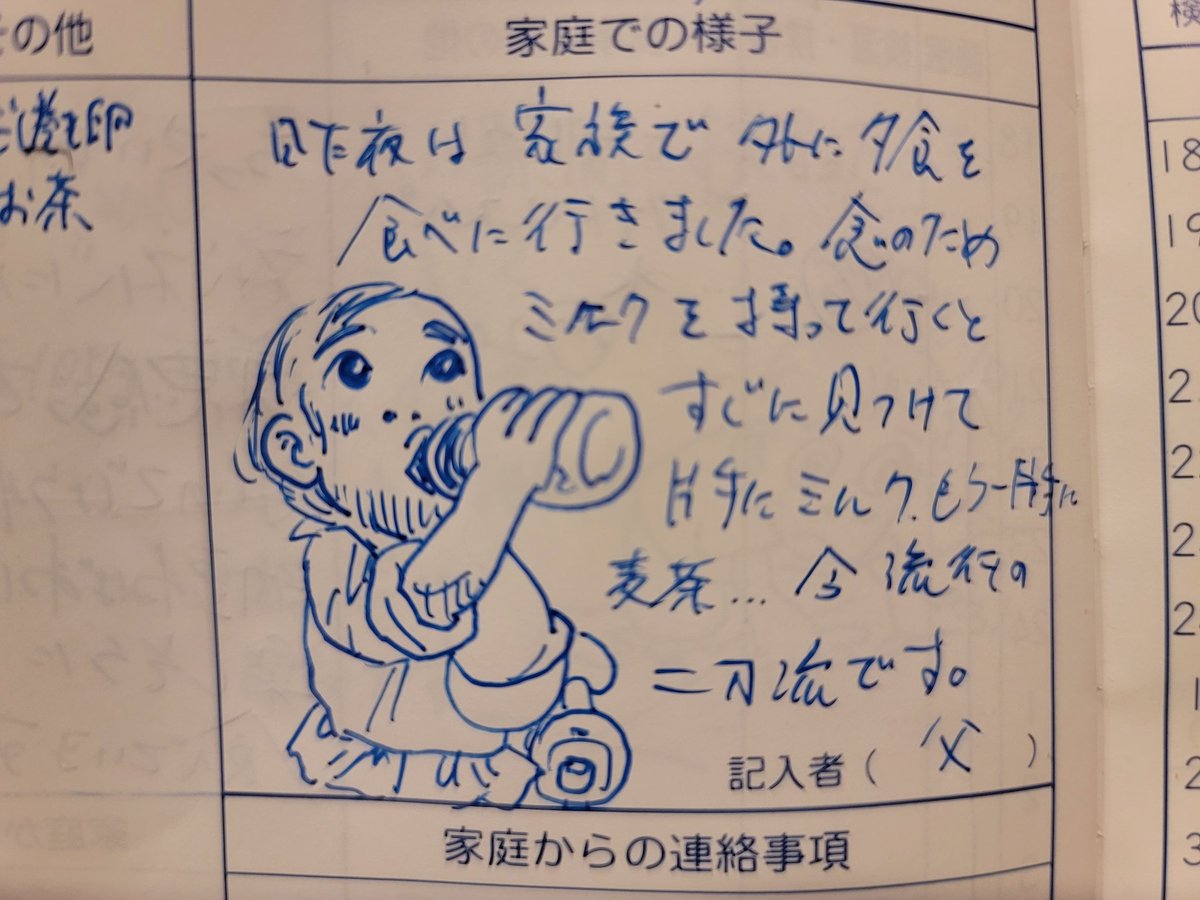 の他
お茶
家庭での様子
昨夜は 家族で 外に 夕食を
食べに行きました。念のため
ミルクを持って行くと
すぐに見つけて
片手にミルク、もう一片手に
麦茶... 今流行の
二刀流です。
記入者（ 父 ）
家庭からの連絡事項
検
18
19
20
2
2
2
2
1
2
3